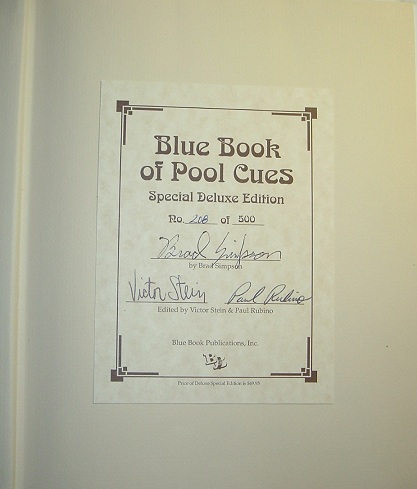 Blue Book
of Pool Cues
Special Deluxe Edition
No. 208 of 500
Brad Simpson
by Brad Simpson
Victor Stein Paul Rubino
Edited by Victor Stein & Paul Rubino
Blue Book Publications, Inc.
BB
Price of Deluxe Special Edition is $69.95